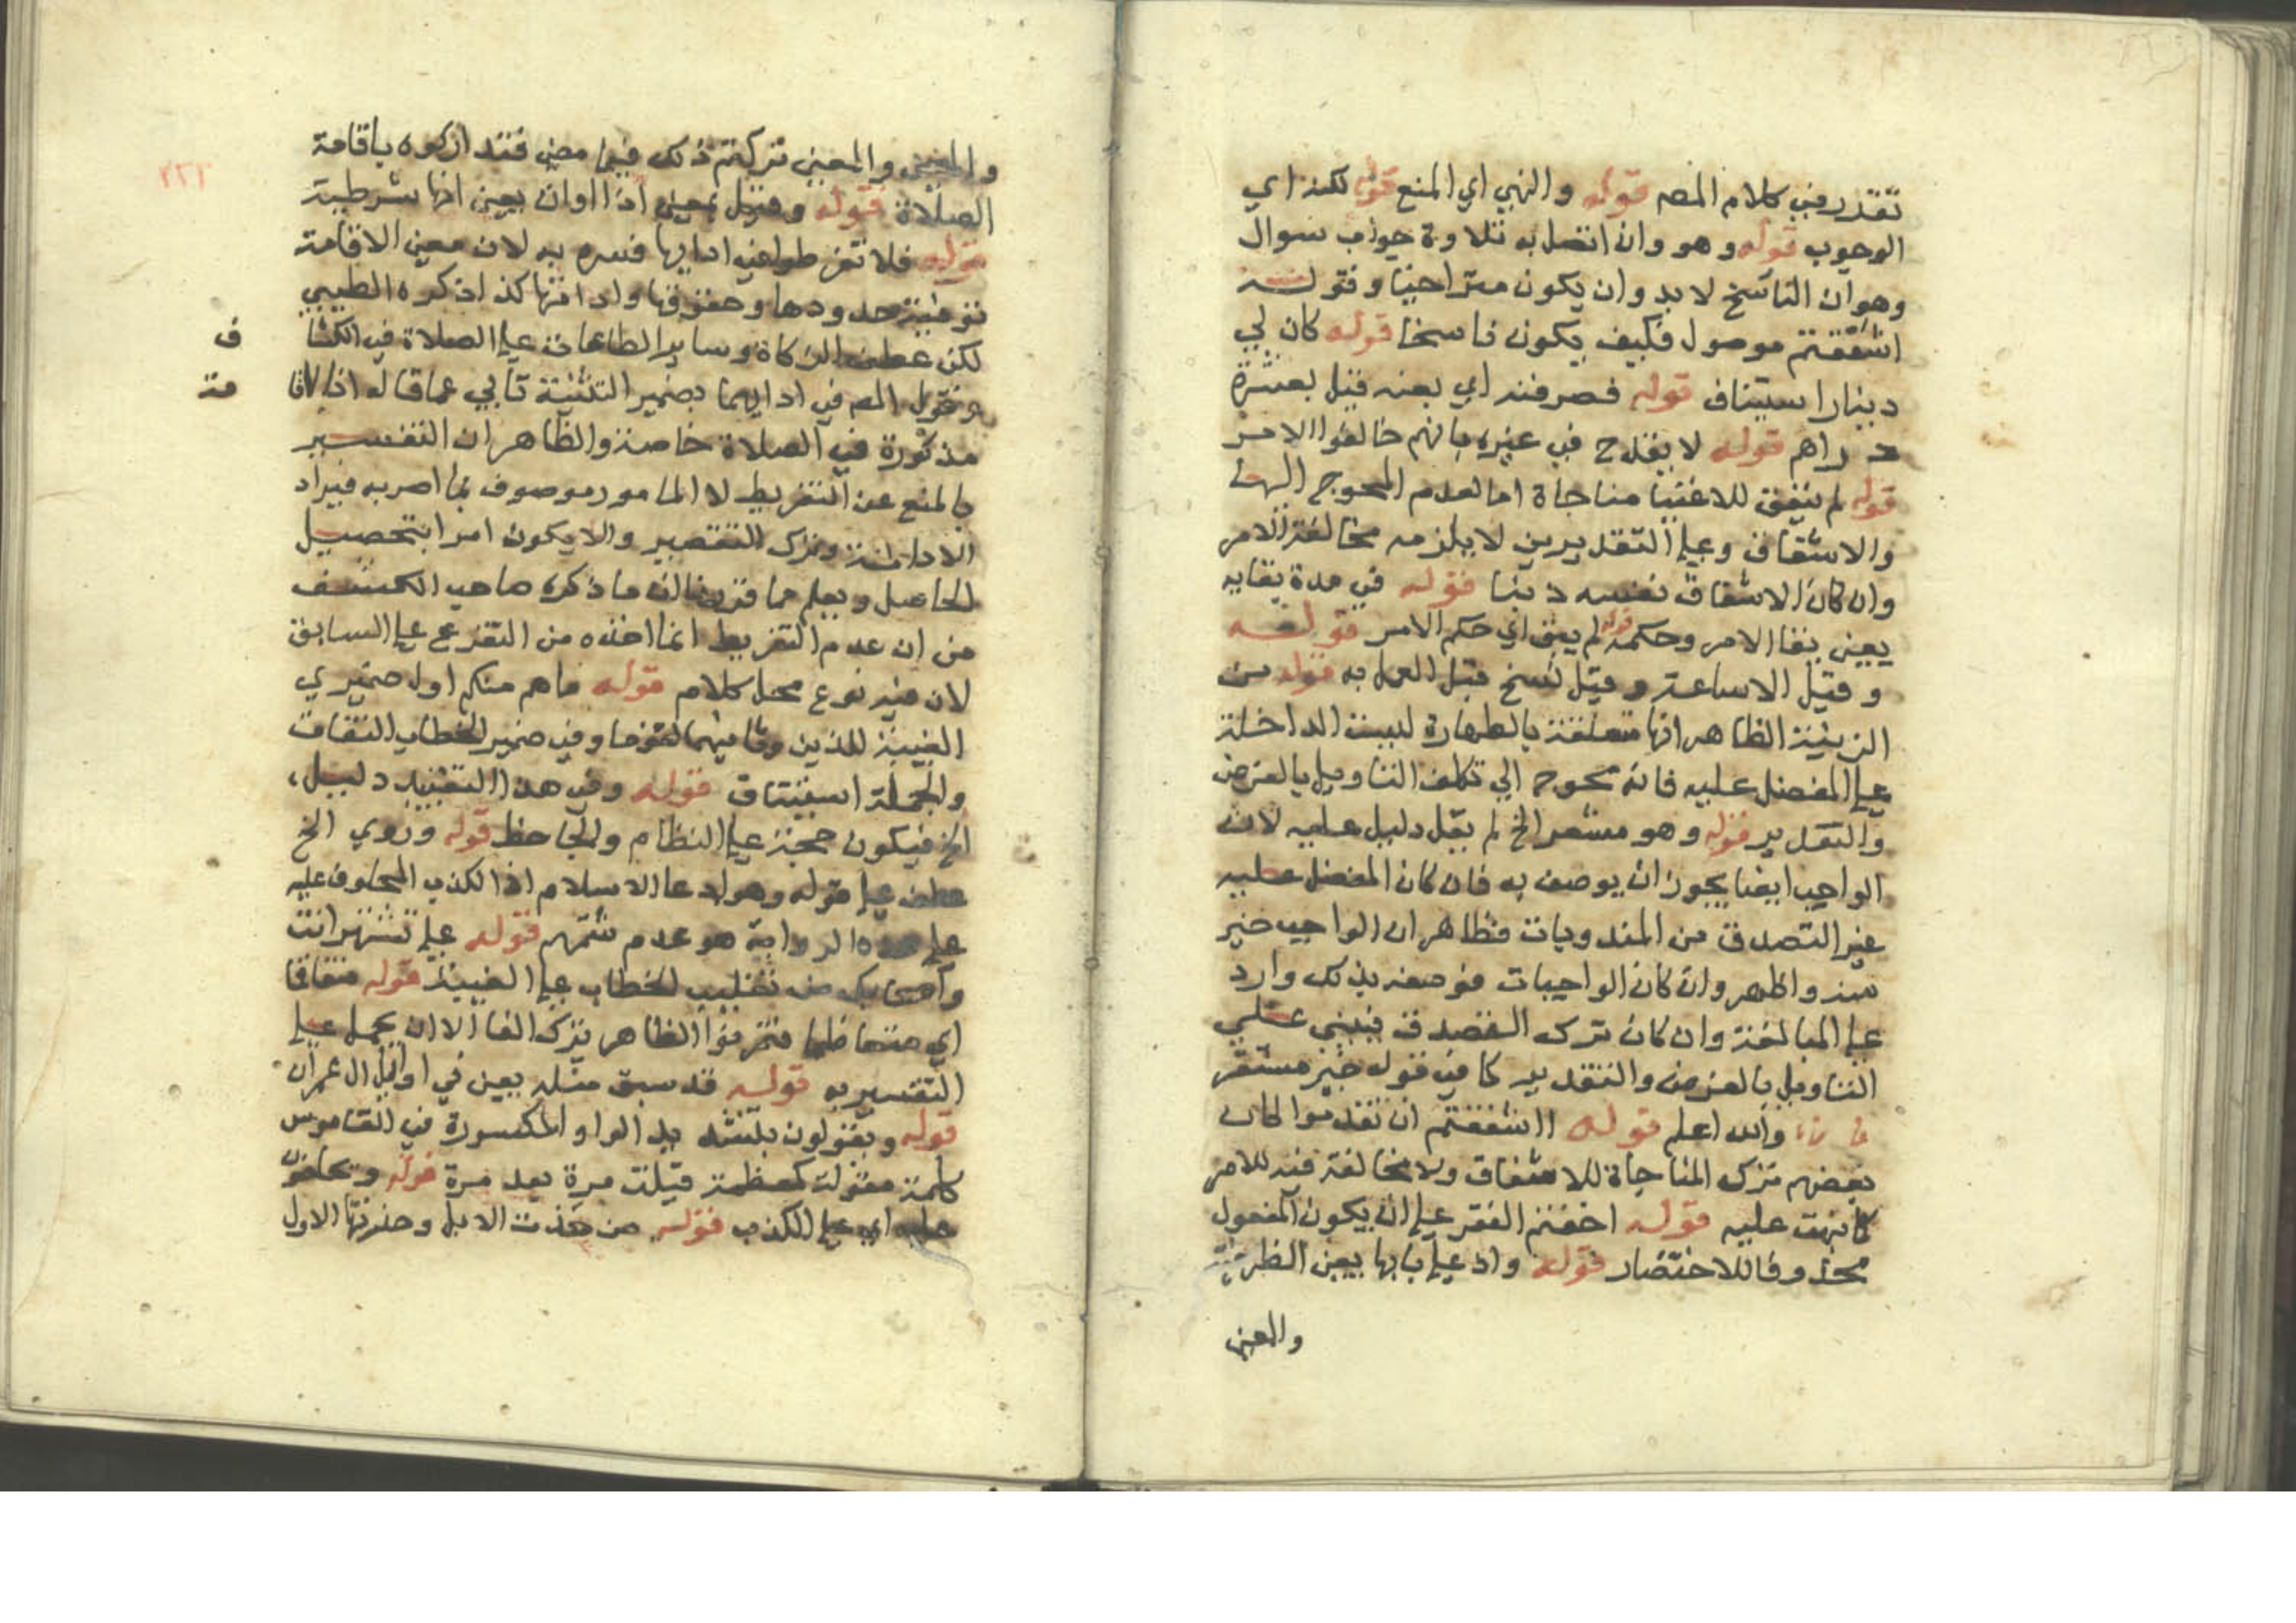 تقدر في كلام المصه قوله والنهي اي المنع قوله لكنه اي
الوجوب قوله وهو وان اتصل به تلاوة جواب سوال
وهو ان الناسخ لا بد وان يكون متراخيا وقوله
اشفقتم موصول فكيف يكون ناسخا قوله كان لي
دينار استيناف قوله فصرفته اي بعته قيل بعشرة
دراهم قوله لا يقدح في غيره بانهم خالفوا الامر
قوله لم يتفق للاغنيا مناجاة اما لعدم المحوج اليها
والاشفاق وعلى التقديرين لا يلزمه مخالفة الامر
وان كان الاشفاق نفسه دنبا قوله في مدة بقايه
يعني بقا الامر وحكمه قوله لم يبق اي حكم الامر قوله
وقيل الا ساعة وقيل نسخ قبل العمل به قوله من
الزينة الظاهر انها متعلقة بالطهارة ليست الداخلة
على المفضل عليه فانه محوج الى تكلف التاويل بالفرض
والتقدير قوله وهو مشعر الخ لم يقل دليل عليه لان
الواجب ايضا يجوز ان يوصف به فان كان المفضل عليه
غير التصدق من المندوبات فظاهر ان الواجب خير
منه واطهر وان كان الواجبات فوصفه بذلك وارد
على المبالغة وان كان ترك التصدق فيبني على
التاويل بالفرض والتقدير كما في قوله خير مستقرا
والله اعلم قوله ااشفقتم ان تقدموا لما كان
بعضهم ترك المناجاة للاشفاق ولا مخالفة فيه للامر
كما نبهت عليه قوله اخفتم الفقر على ان يكون المفعول
محذوفا للاختصار قوله واذ على بابها يعني الظرفية
والمعنى
والمعنى تركتم ذلك فيما مضى فتداركوه باقامة
الصلاة قوله وقيل بمعنى اذا او ان يعني انها شرطية
قوله فلا تفرطوا في ادايها فسره به لان معنى الاقامة
توفية حدودها وحقوقها وادامتها كذا ذكره الطيبي
لكن عطف الزكاة وساير الطاعات على الصلاة في الكشا ف
وقول المصه في ادايهما بضمير التثنية تابى عما قاله اذ الاقا مة
مذكورة في الصلاة خاصة والظاهر ان التفسير
بالمنع عن التفريط لا المامور موصوف بما امر به فيراد
الادامة وترك التقصير والا يكون امرا بتحصيل
الحاصل ويعلم مما قررنا ان ما ذكره صاحب الكشف
من ان عدم التفريط انما اخذه من التفريع على السابق
لان فيه نوع محل كلام قوله ما هم منكم اول ضميري
الغيبة للذين وثانيهما لقوما وفي ضمير الخطاب التفات
والجملة استيناف قوله وفي هذا التقييد دليل
الخ فيكون حجة على النظام والجاحظ قوله وروي الخ
عطف على قوله وهو ادعا الاسلام اذ الكذب المحلوف عليه
على هذه الرواية هو عدم شتمهم قوله على تشتمني انت
واصحابك من تغليب الخطاب على الغيبة قوله متفاقما
اي متعاظما فتفرقوا الظاهر بترك الفا الا ان يحمل على
التفسير به قوله قد سبق مثله يعني في اوايل ال عمران
قوله ويقولون بتشديد الواو المكسورة في القاموس
كلمة مقولة كمعظمة قيلت مرة بعد مرة قوله وتحلفون
عليه اي على الكذب قوله من حذت الابل وحذوتها الاول